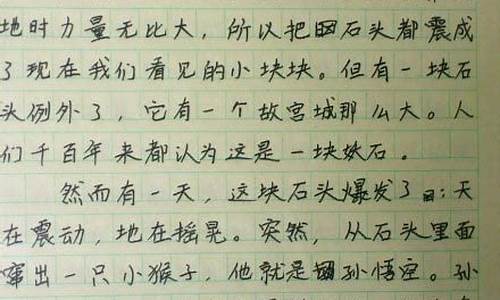 地时力量无比大，所以把石头都震成
了现在我们看见的小块块。但有一块石
头例外了，它有一个故宫城那么大。人
们千百年来都认为这是一块妖石。
然而有一天，这块石头爆发了：天
在震动，地在摇晃。突然，从石头里面
窜出一只小猴子，他就是孙悟空。孙